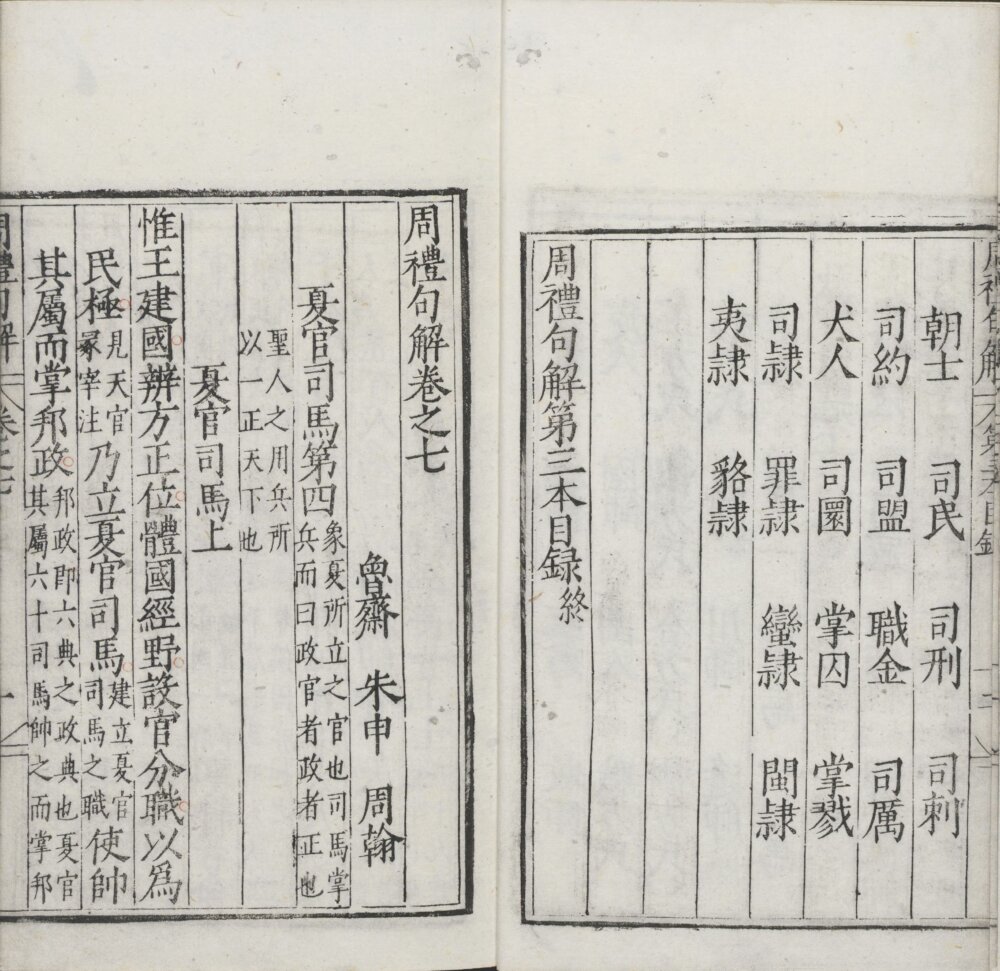 朝士 司民 司刑 司刺
司約 司盟 職金 司厲
犬人 司圜 掌囚 掌戮
司隷 罪隷 蠻隷 閩隷
夷隷 貉隷
周禮句解第三本目録終
周禮句解卷之七
魯齋 朱申 周翰
夏官司馬第四 象夏所立之官也司馬掌
兵而曰政官者政者正也
聖人之用兵所
以一正天下也
夏官司馬上
惟王建國辨方正位體國經野設官分職以爲
民極 見天官
冡宰注 乃立夏官司馬 建立夏官
司馬之職 使帥
其屬而掌邦政 邦政即六典之政典也夏官
其屬六十司馬帥之而掌邦
周禮句解 卷之七 一